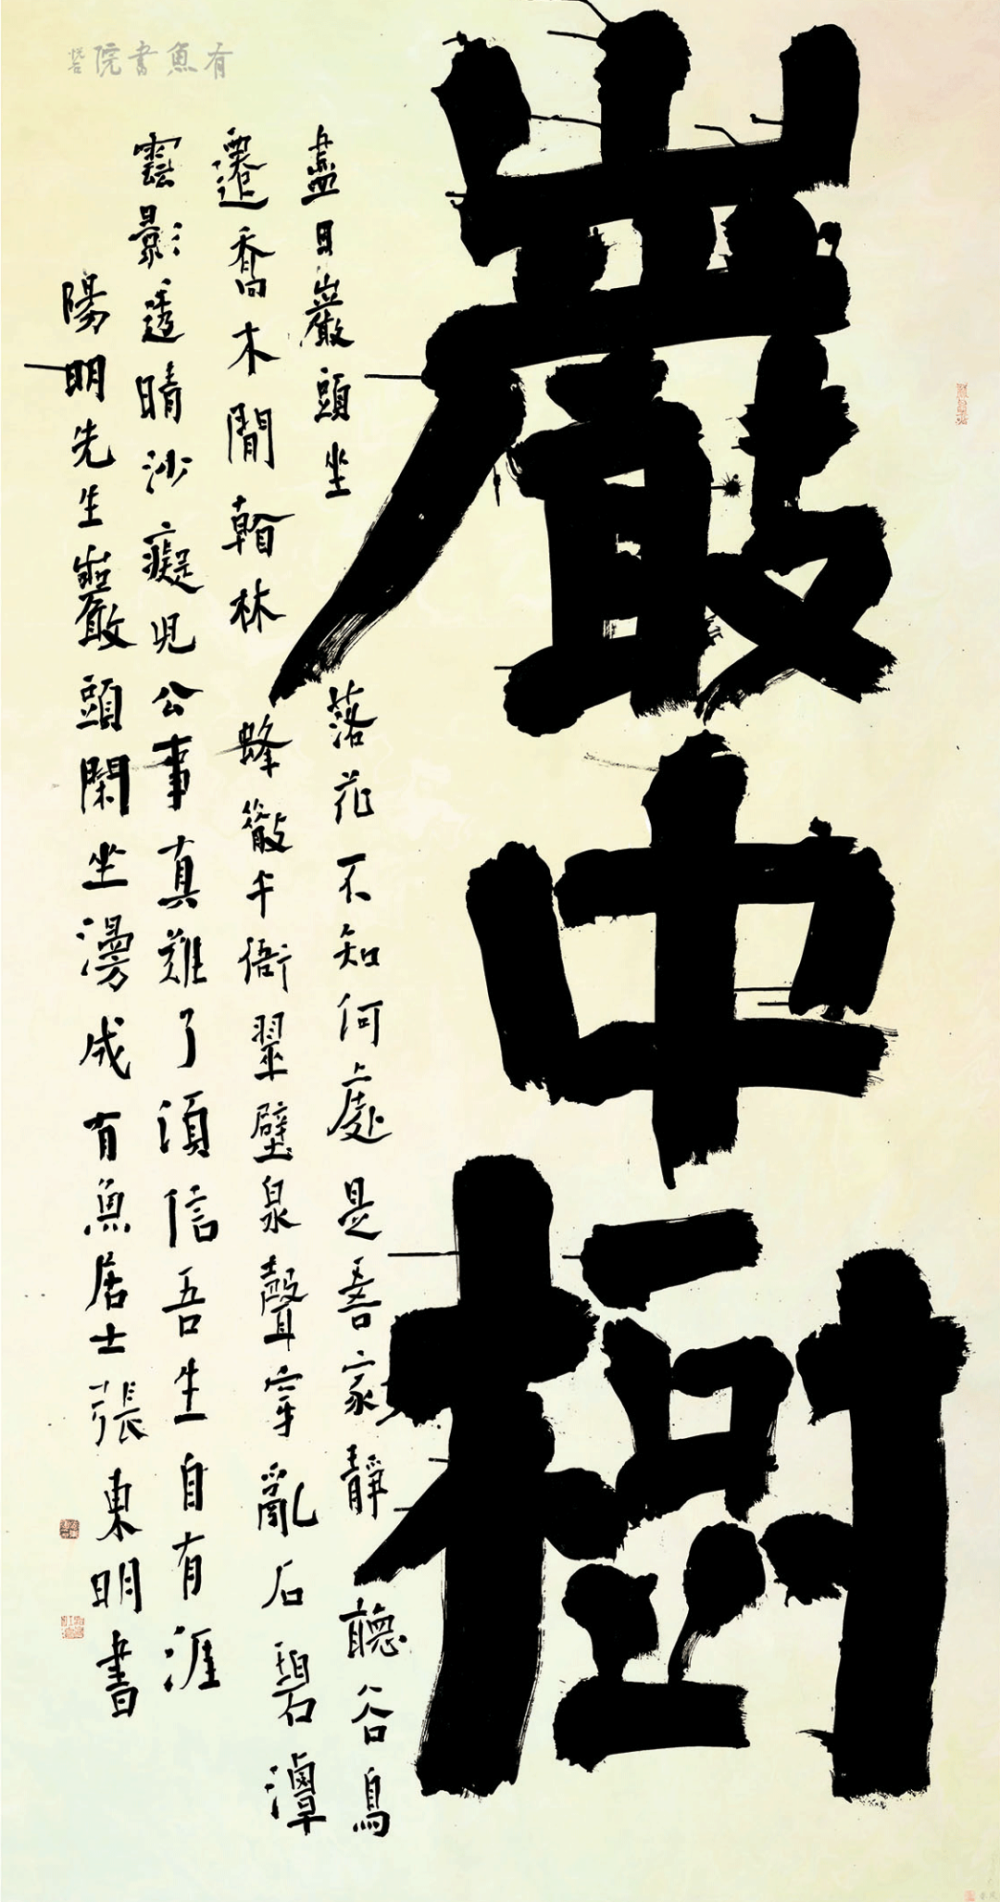 巖中樹
盡日巖頭坐落花不知何處是吾家靜聽谷鳥
遷喬木閒看林蜂散午衙翠壁泉聲穿亂石碧潭
雲影透晴沙癡兒公事真難了須信吾生自有涯
陽明先生巖頭閑坐漫成有魚居士張東明書
有魚書院